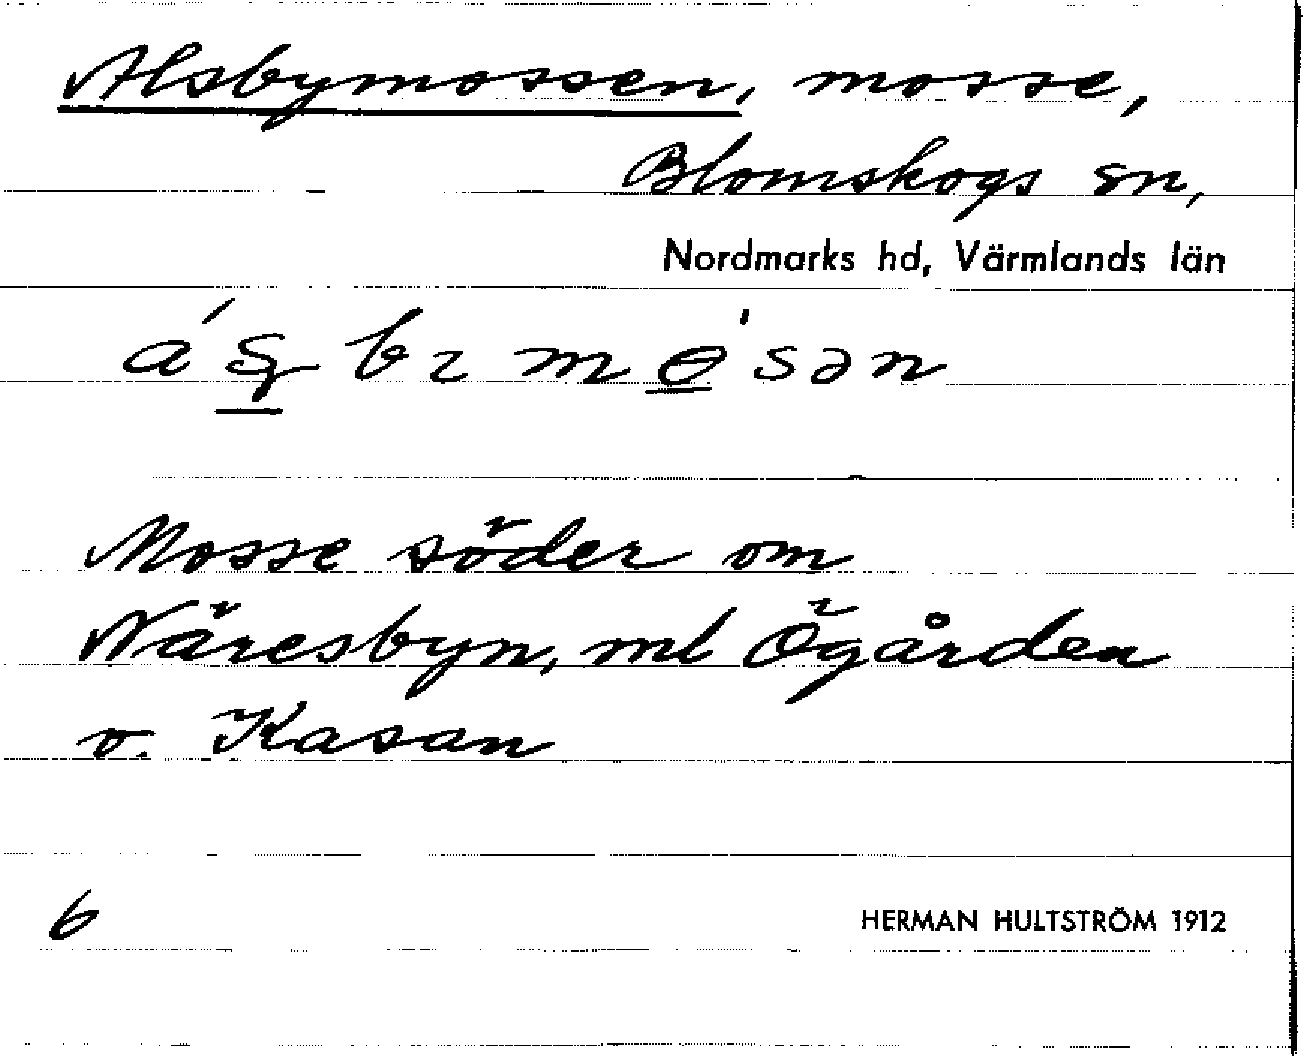 Alsbymossen, mosse,
Blomskogs sn,
Nordmarks hd, Värmlands län
Mosse söder om
Näresbyn, ml Ögården
o. Kasan
6
HERMAN HULTSTRÖM 1912